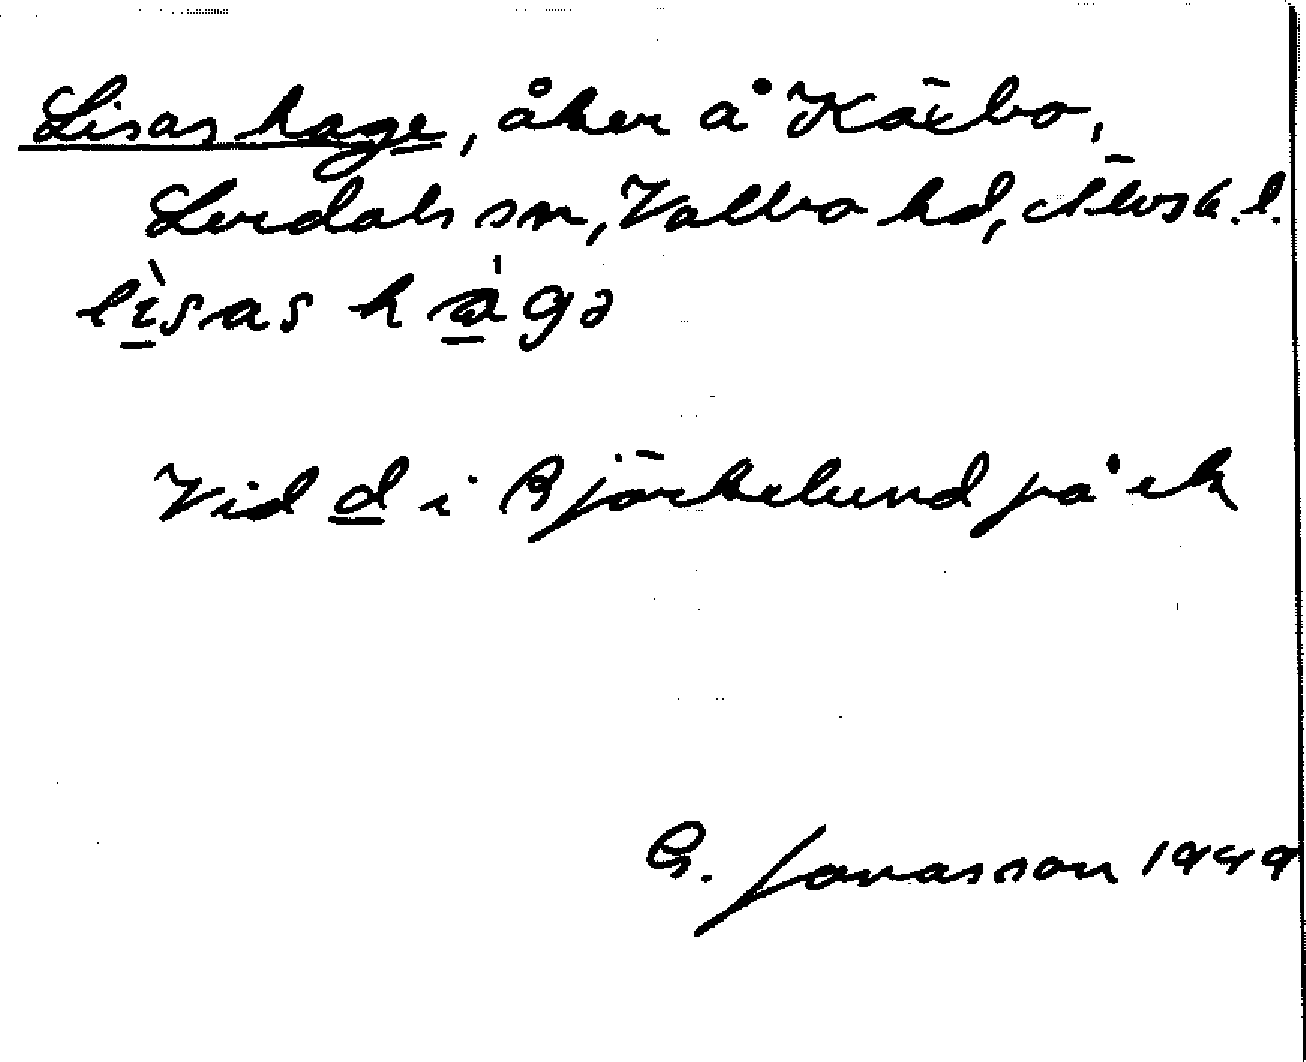 Lisas hage, åker å Käxbo,
Lerdals sn, Valbo hd, Älvsb. l.
lìsas hágə
Vid d i Björkelund på ek
G. Jonasson 1949